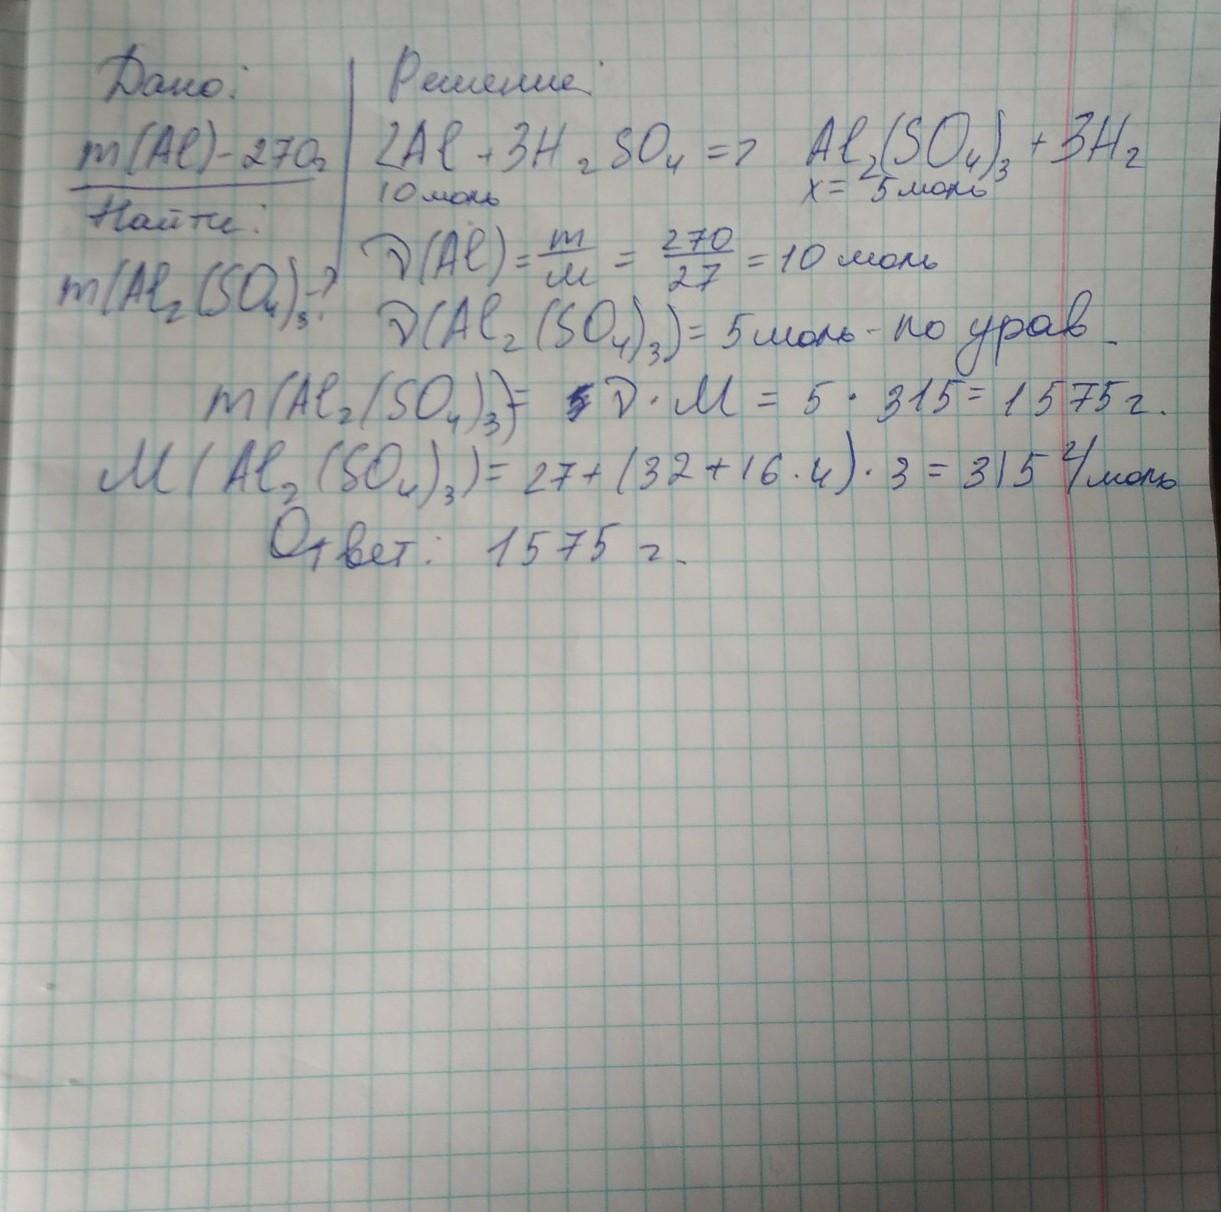 Дано:
m(Al) - 270г
Найти:
m(Al₂(SO₄)₃-?
Решение:
2Al + 3H₂SO₄ => Al₂(SO₄)₃ + 3H₂
10 моль x = 5 моль
ν(Al) = m/M = 270/27 = 10 моль
ν(Al₂(SO₄)₃) = 5 моль - по урав.
m(Al₂(SO₄)₃) = ν · M = 5 · 315 = 1575 г.
M(Al₂(SO₄)₃) = 27 + (32 + 16 · 4) · 3 = 315 г/моль
Ответ: 1575 г.